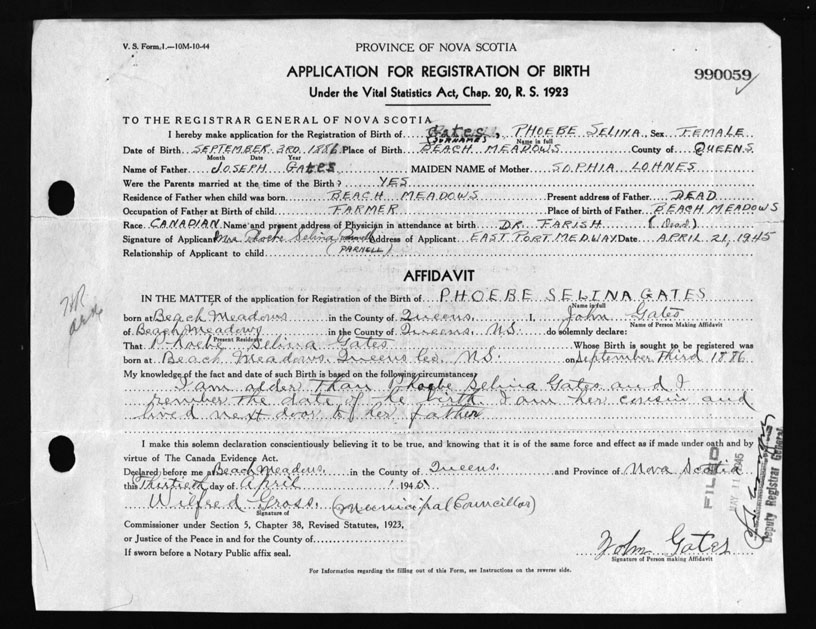 V. S. Form 1.—10M-10-44
PROVINCE OF NOVA SCOTIA
APPLICATION FOR REGISTRATION OF BIRTH
990059
Under the Vital Statistics Act, Chap. 20, R. S. 1923
TO THE REGISTRAR GENERAL OF NOVA SCOTIA
I hereby make application for the Registration of Birth of Gates, PHOEBE SELINA Sex FEMALE
(SURNAME) Name in full
Date of Birth SEPTEMBER 3RD. 1886 Place of Birth BEACH MEADOWS County of QUEENS
Month Date Year
Name of Father JOSEPH GATES MAIDEN NAME of Mother SOPHIA LOHNES
Were the Parents married at the time of the Birth? YES
Residence of Father when child was born BEACH MEADOWS Present address of Father DEAD
Occupation of Father at Birth of child FARMER Place of birth of Father BEACH MEADOWS
Race CANADIAN Name and present address of Physician in attendance at birth DR. FARISH (Dead)
Signature of Applicant Mrs Phoebe Selina Address of Applicant EAST PORT MEDWAY Date APRIL 21, 1945
Relationship of Applicant to child (PARNELL)
AFFIDAVIT
IN THE MATTER of the application for Registration of the Birth of PHOEBE SELINA GATES
Name in full
born at Beach Meadows in the County of Queens I, John Gates
Name of Person Making Affidavit
of Beach Meadows in the County of Queens, N.S. do solemnly declare:
Present Residence
That Phoebe Selina Gates Whose Birth is sought to be registered was
born at Beach Meadows Queens Co. N.S. on September Third 1886
My knowledge of the fact and date of such Birth is based on the following circumstances:
I am older than Phoebe Selina Gates and I
rember the date of the birth. I am her cousin and
lived next door to her father
I make this solemn declaration conscientiously believing it to be true, and knowing that it is of the same force and effect as if made under oath and by
virtue of The Canada Evidence Act.
Declared before me at Beach Meadows in the County of Queens and Province of Nova Scotia
this Thirtieth day of April 194
Wilfred Gross (Municipal Councillor)
Signature of
Commissioner under Section 5, Chapter 38, Revised Statutes, 1923,
or Justice of the Peace in and for the County of
If sworn before a Notary Public affix seal.
John Gates
Signature of Person making Affidavit
FILED
MAY 11 1945
Deputy Registrar General
For Information regarding the filling out of this Form, see Instructions on the reverse side.